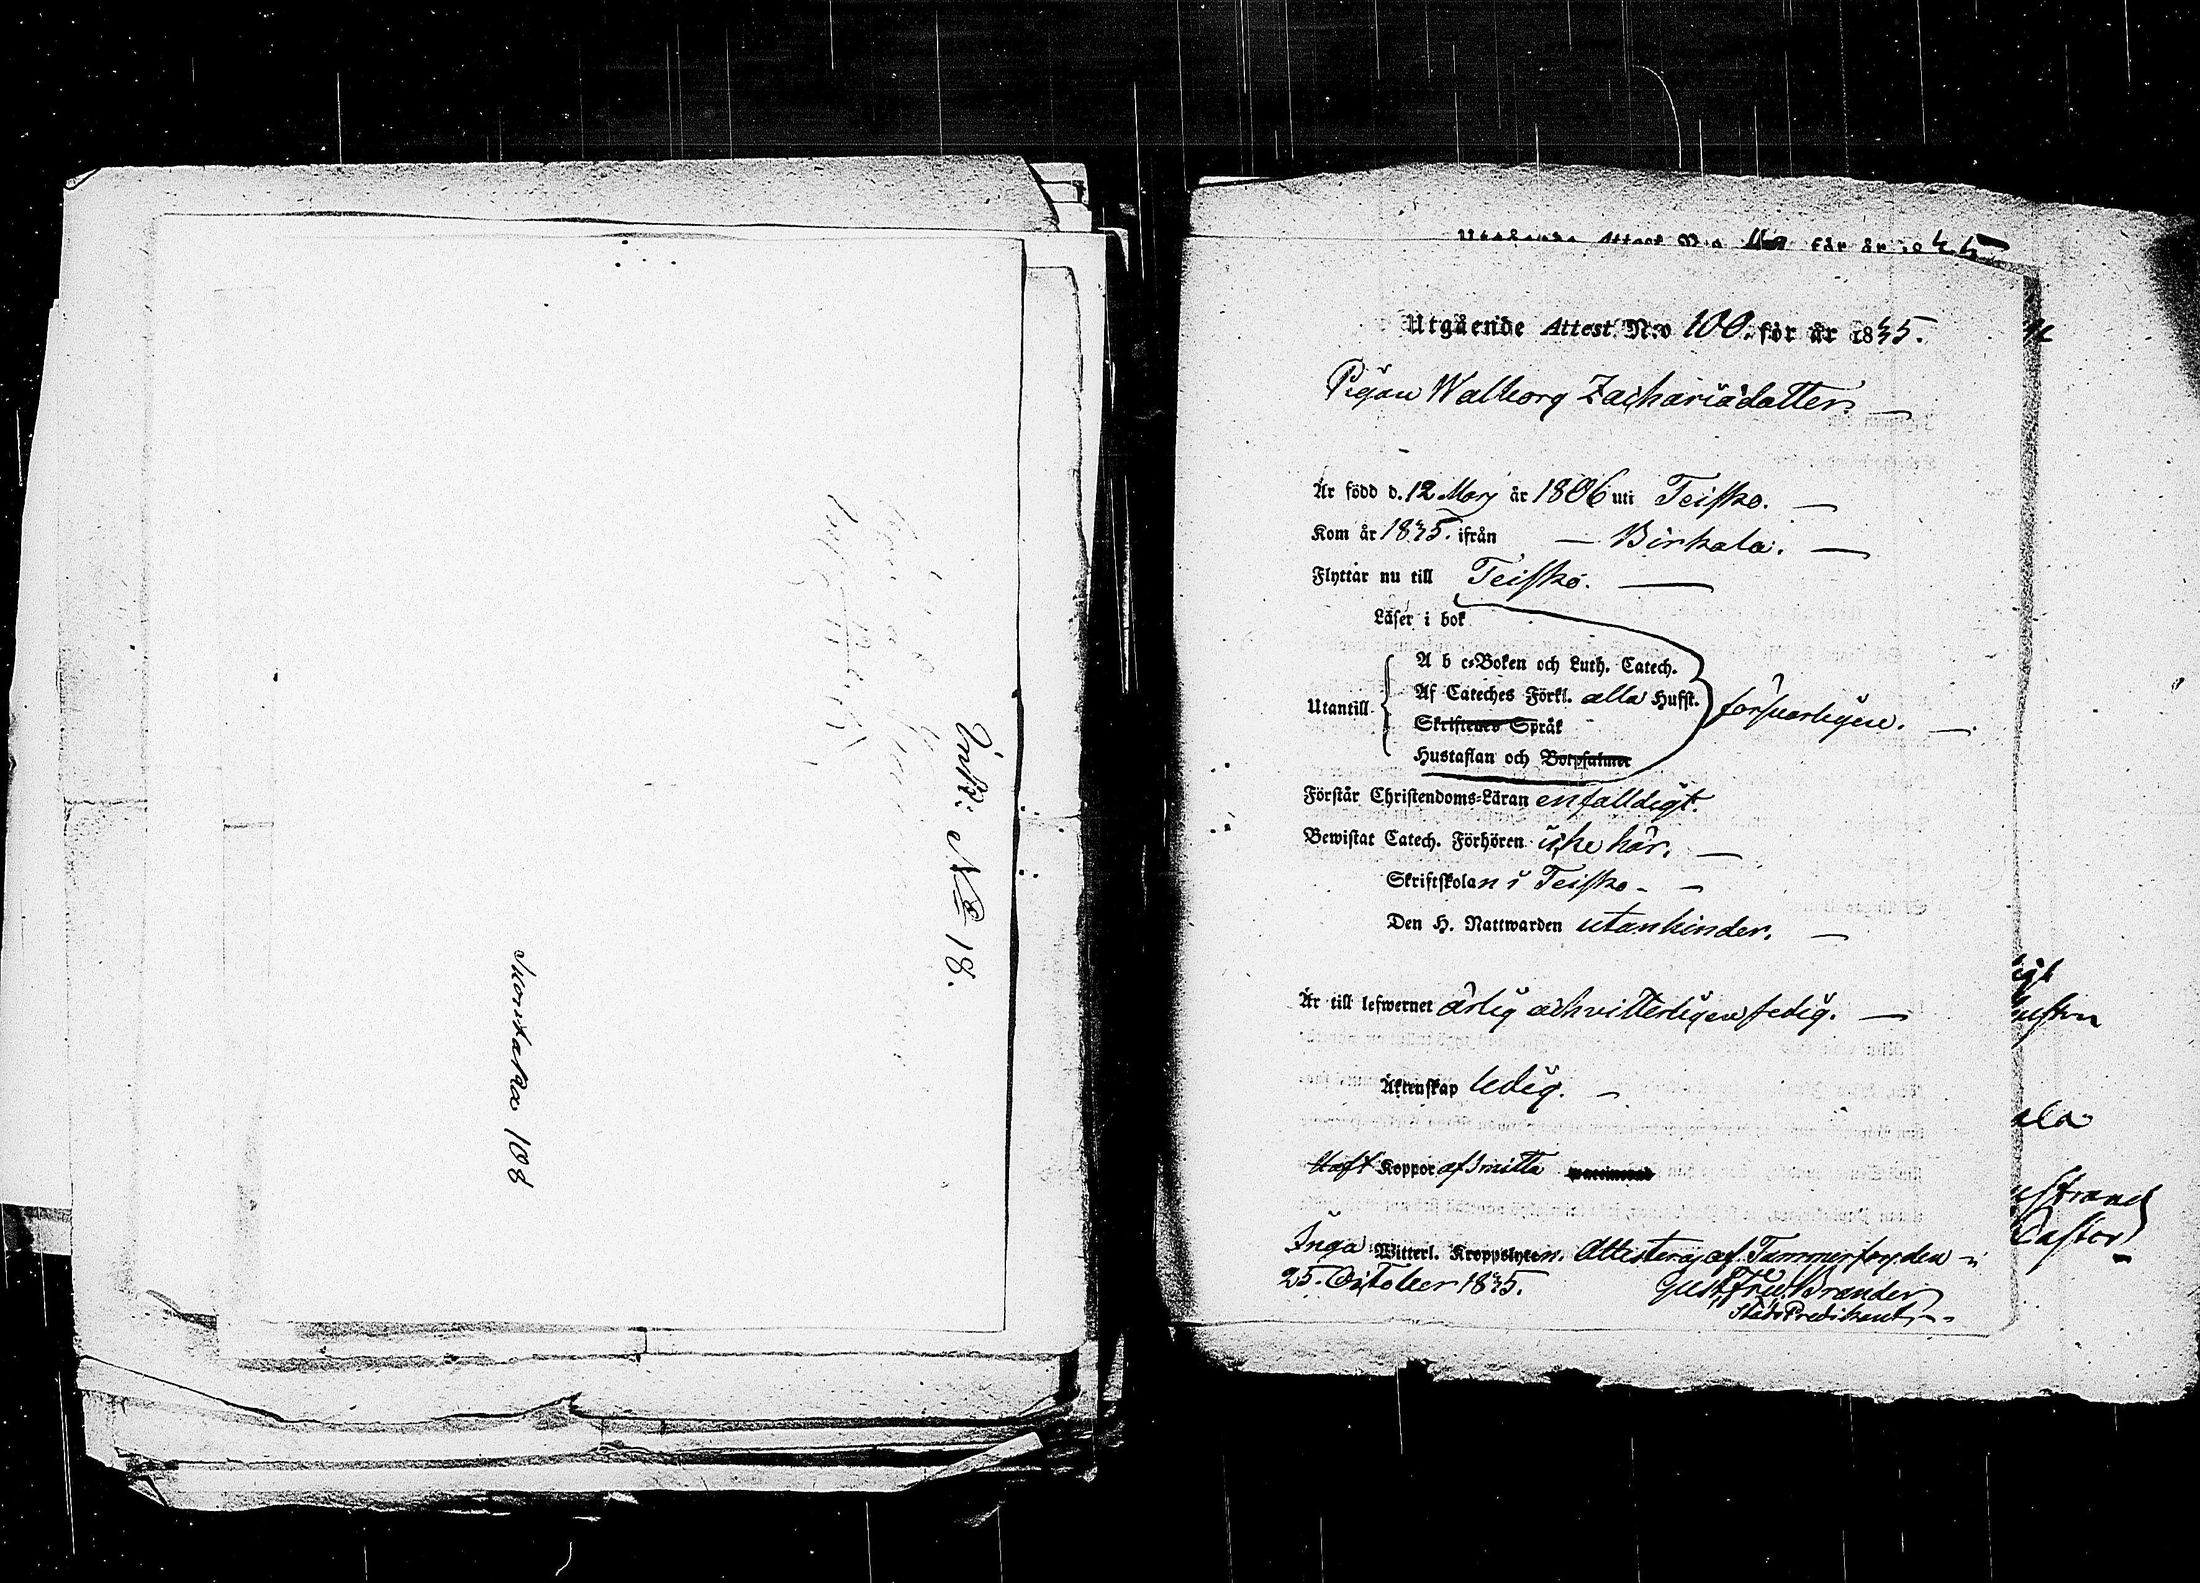 Ink: No 18.
Suontaka 108
Utgående Attest N:o 100. för år 1835.
Pigan Walborg Zachariädotter
Är född d. 12 Mars år 1806 uti Teisko.
Kom år 1835. ifrån Birkala.
Flyttar nu till Teisko.
Läser i bok
A b c-Boken och Luth. Catech.
Utantill Af Cateches Förkl. alla Hufst. försvarligen.
Skriftenes Språk
Hustaflan och Botpsalmer
Förstår Christendoms-Läran enfalldigt.
Bewistat Catech. Förhören icke här.
Skriftskolan i Teisko
Den H. Nattwarden utan hinder.
Är till lefwernet ärlig och vitterligen fredig.
Äktenskap ledig.
Haft Koppor af smitta
Inga Witterl. Kroppslyten. Attesteras af Tammerfors den
25. October 1835. Gust. Fred. Brander
Stads Predikant